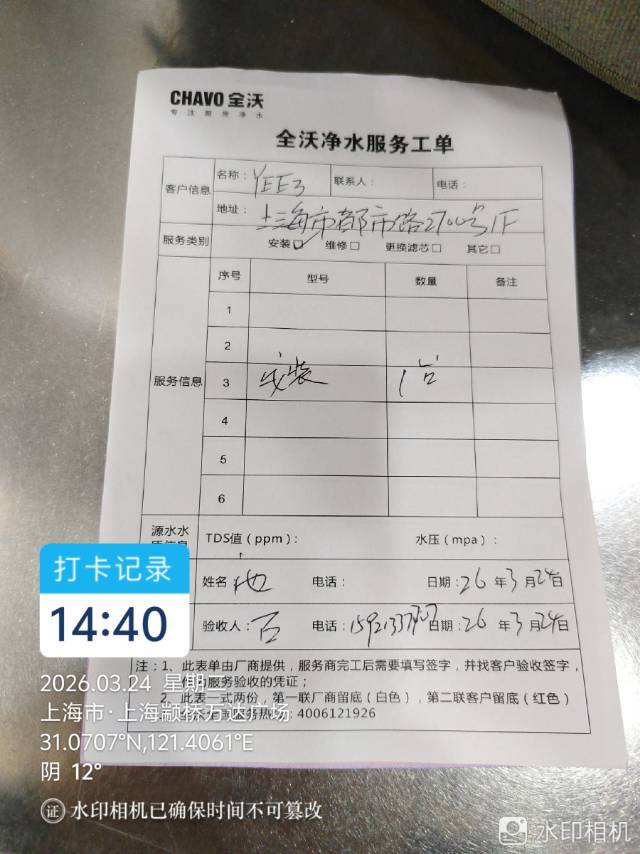 CHAVO 全沃
专注厨房净水
全沃净水服务工单
客户信息
名称： YEE3
联系人：
电话：
地址： 上海市都市路2700号1F
服务类别
安装☑ 维修□ 更换滤芯□ 其它□
服务信息
序号 型号 数量 备注
1
2
3 安装 1台
4
5
6
源水水
TDS值（ppm）： 水压（mpa）：
姓名 电话： 日期：26年3月24日
验收人： 电话： 日期：26年3月24日
注：1、此表单由厂商提供，服务商完工后需要填写签字，并找客户验收签字，
服务验收的凭证；
2、此表一式两份，第一联厂商留底（白色），第二联客户留底（红色）
务热 4006121926
打卡记录
14:40
2026.03.24 星期
上海市·上海颛桥万达广场
31.0707°N,121.4061°E
阴 12°
证 水印相机已确保时间不可篡改
水印相机